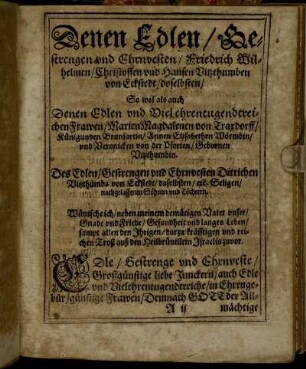 Denen Edlen / Ge-
strengen vnd Ehrnvesten / Friedrich Wil-
helmen / Christoffen vnd Hansen Vitzthumben
von Eckstedt / doselbsten /
So wol als auch
Denen Edlen vnd Viel ehrentugendtrei-
chen Frawen / Marien Magdalenen von Traxdorff /
Künigunden Annen Elisabethen Wormbin /
vnd Veronicen von der Pforten / Gebornen
Vitzthumbin.
Des Edlen / Gestrengen vnd Ehrnvesten Ditrichen
Vitzthumbs von Eckstedt / daselbsten / Seligen /
nachgelassenen Söhnen vnd Töchtern.
Wüntsche ich / neben meinem demütigen Vater vnser /
Gnade vnd Friede / Gesundheit vnd langes Leben /
sampt allen den Ihrigen / darzu kräfftigen vnd rei-
chen Trost auß den Heilbrünnlein Israelis zuvor.
EDle / Gestrenge vnd Ehrnveste /
Großgünstige liebe Junckern / auch Edle
vnd Vielehrentugendtreiche / in Ehrenge-
bür / günstige Frawen / Demnach GOTT der All-
A ij wächtige